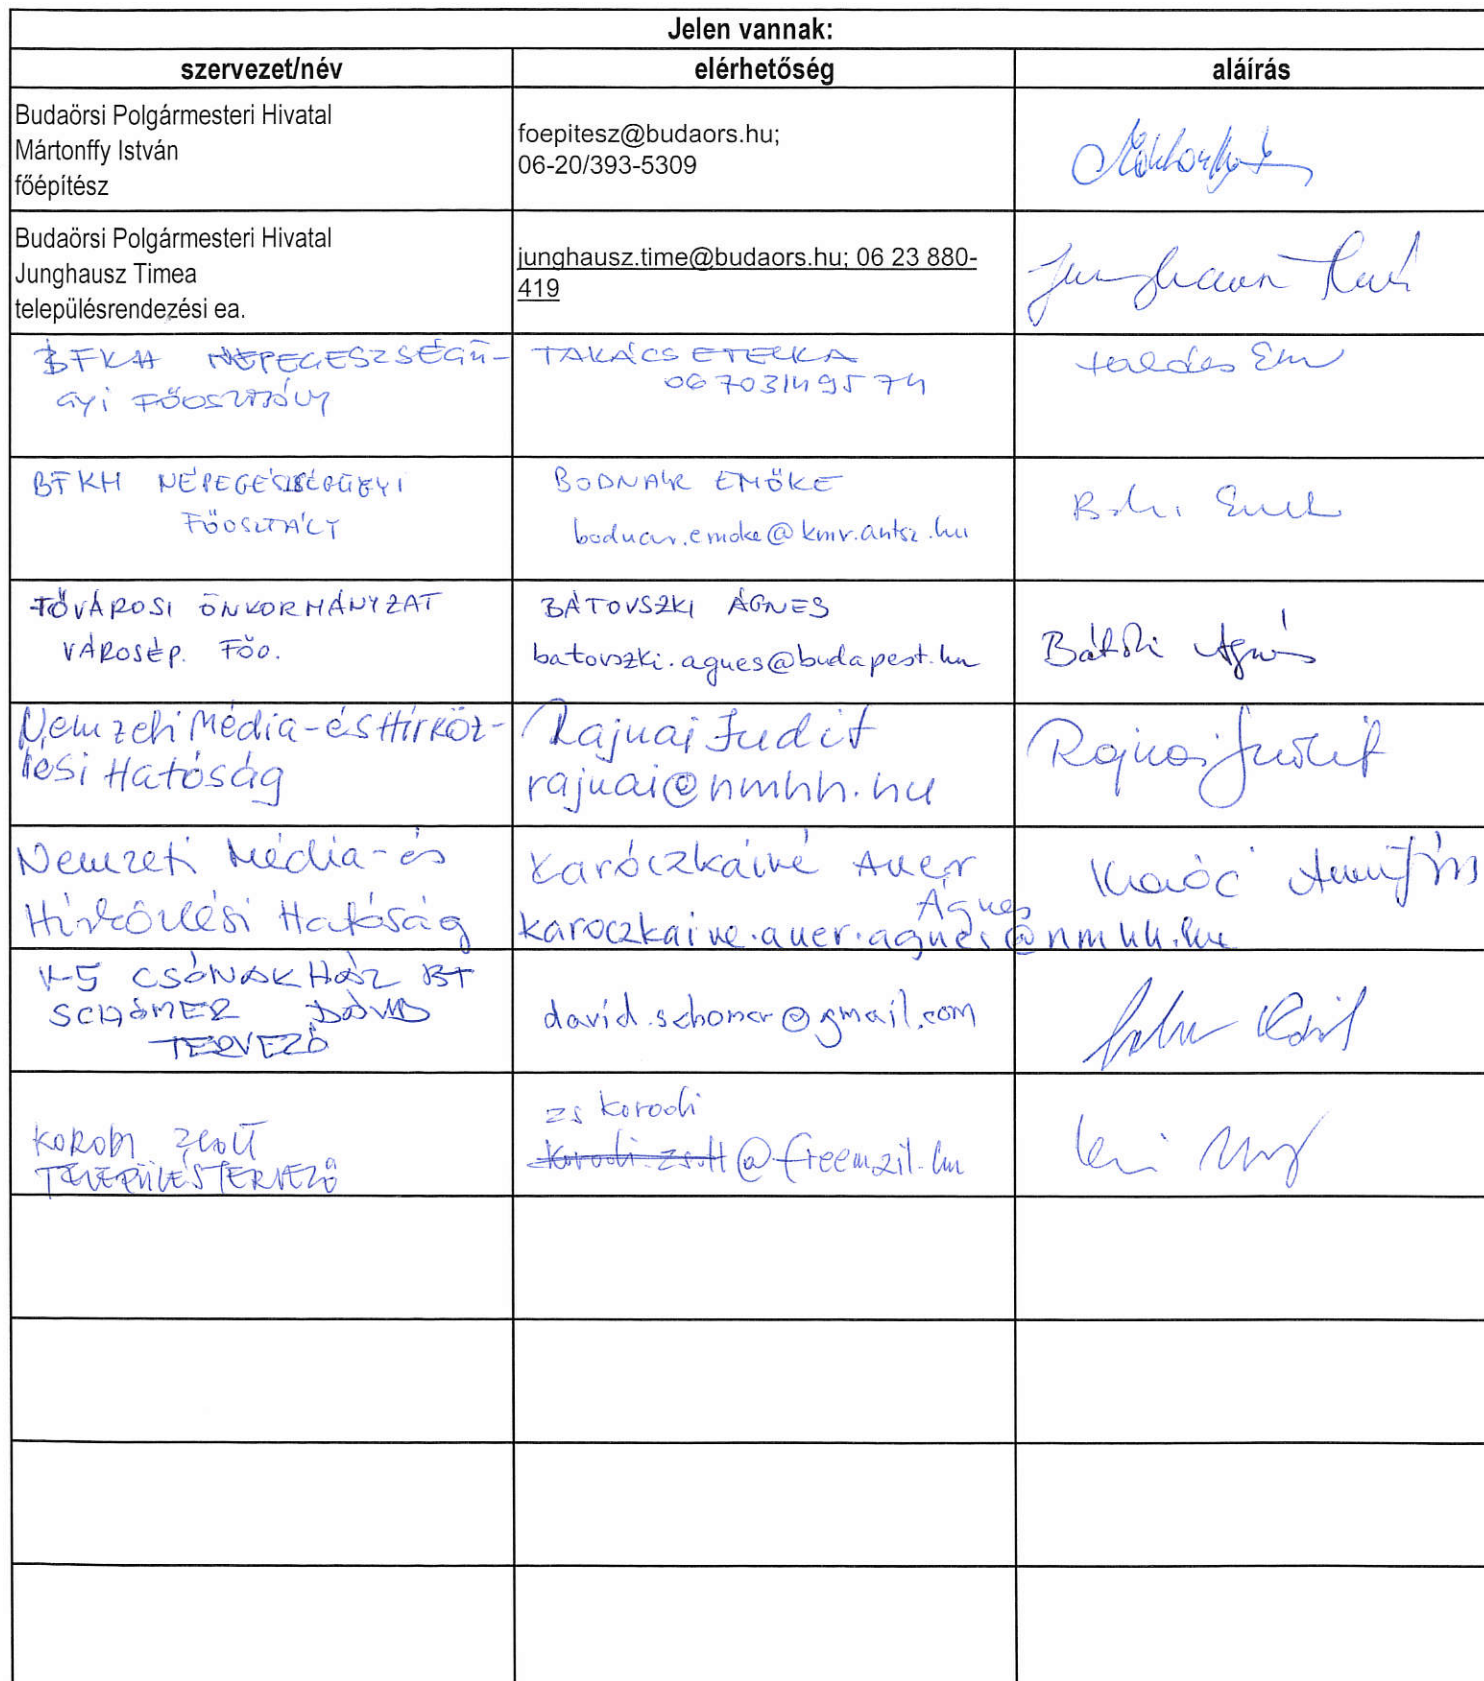 Jelen vannak:
szervezet/név elérhetőség aláírás
Budaörsi Polgármesteri Hivatal
Mártonffy István
főépítész
foepitesz@budaors.hu;
06-20/393-5309
Budaörsi Polgármesteri Hivatal
Junghausz Timea
településrendezési ea.
junghausz.time@budaors.hu; 06 23 880-
419
BFKH NÉPEGÉSZSÉGÜ-
GYI FŐOSZTÁLY
TAKÁCS ETELKA
06703149574
BFKH NÉPEGÉSZSÉGÜGYI
FŐOSZTÁLY
BODNÁR EMŐKE
bodnar.emoke@kmr.antsz.hu
FŐVÁROSI ÖNKORMÁNYZAT
VÁROSÉP. FŐO.
BÁTOVSZKI ÁGNES
batovszki.agnes@budapest.hu
Nemzeti Média-és Hírköz-
lési Hatóság
Rajnai Judit
rajnai@nmhh.hu
Rajnai Judit
Nemzeti Média-és
Hírközlési Hatóság
Karóczkainé Auer
Ágnes
karoczkaine.auer.agnes@nmhh.hu
K-5 CSÓNAKHÁZ BT
SCHÓMER DÁVID
TERVEZŐ
david.schomer@gmail.com
KORODI ZSOLT
TELEPÜLÉSTERVEZŐ
zs korodi
korodi.zsolt@freemail.hu